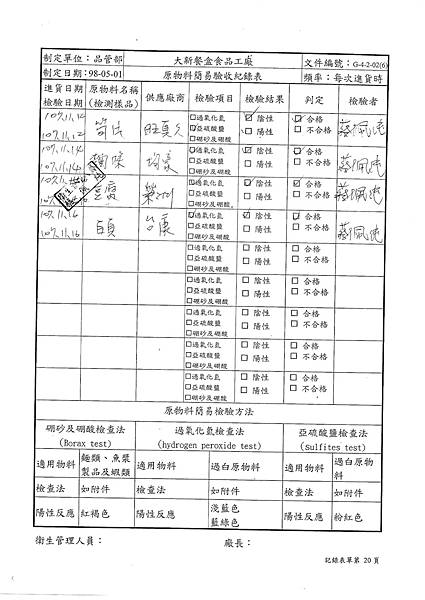 制定單位：品管部 大新餐盒食品工廠 文件編號：G-4-2-02(6)
制定日期：98-05-01 原物料簡易驗收紀錄表 頻率：每次進貨時
進貨日期 原物料名稱 供應廠商 檢驗項目 檢驗結果 判定 檢驗者
檢驗日期 (檢測樣品)
107.11.12 ☑過氧化氫 ☑陰性 ☑合格
107.11.12 筍片 旺員久 ☑亞硫酸鹽 □陽性 □不合格 蔡佩陵
□硼砂及硼酸
107.11.14 ☑過氧化氫 ☑陰性 ☑合格
107.11.14 □亞硫酸鹽 □陽性 □不合格
□硼砂及硼酸
☑過氧化氫 ☑陰性 ☑合格
□亞硫酸鹽 □陽性 □不合格
□硼砂及硼酸
107.11.16 ☑過氧化氫 ☑陰性 ☑合格
107.11.16 □亞硫酸鹽 □陽性 □不合格
□硼砂及硼酸
□過氧化氫 □陰性 □合格
□亞硫酸鹽 □陽性 □不合格
□硼砂及硼酸
□過氧化氫 □陰性 □合格
□亞硫酸鹽 □陽性 □不合格
□硼砂及硼酸
□過氧化氫 □陰性 □合格
□亞硫酸鹽 □陽性 □不合格
□硼砂及硼酸
□過氧化氫 □陰性 □合格
□亞硫酸鹽 □陽性 □不合格
□硼砂及硼酸
原物料簡易檢驗方法
硼砂及硼酸檢查法 過氧化氫檢查法 亞硫酸鹽檢查法
(Borax test) (hydrogen peroxide test) (sulfites test)
適用物料 麵類、魚漿製品及蝦類 適用物料 過白原物料 適用物料 過白原物料
檢查法 如附件 檢查法 如附件 檢查法 如附件
陽性反應 紅褐色 陽性反應 淺藍色 藍綠色 陽性反應 粉紅色
衛生管理人員： 廠長：
記錄表單第 20 頁